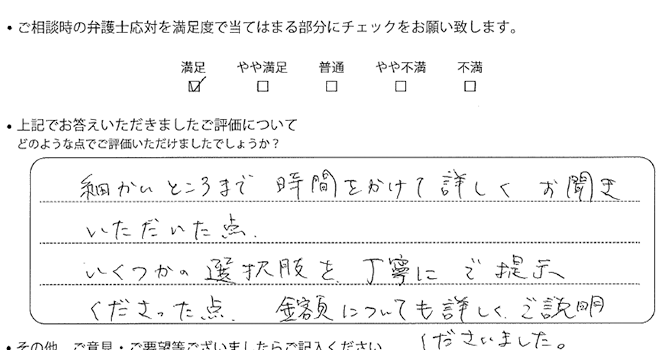 • ご相談時の弁護士応対を満足度で当てはまる部分にチェックをお願い致します。
満足 やや満足 普通 やや不満 不満
☑ □ □ □ □
• 上記でお答えいただきましたご評価について
どのような点でご評価いただけましたでしょうか?
細かいところまで 時間をかけて詳しく お聞き
いただいた点.
いくつかの選択肢を、丁寧に ご提示
くださった点. 金額についても詳しくご説明
くださいました。
• その他、ご意見・ご要望等ございましたらご記入ください